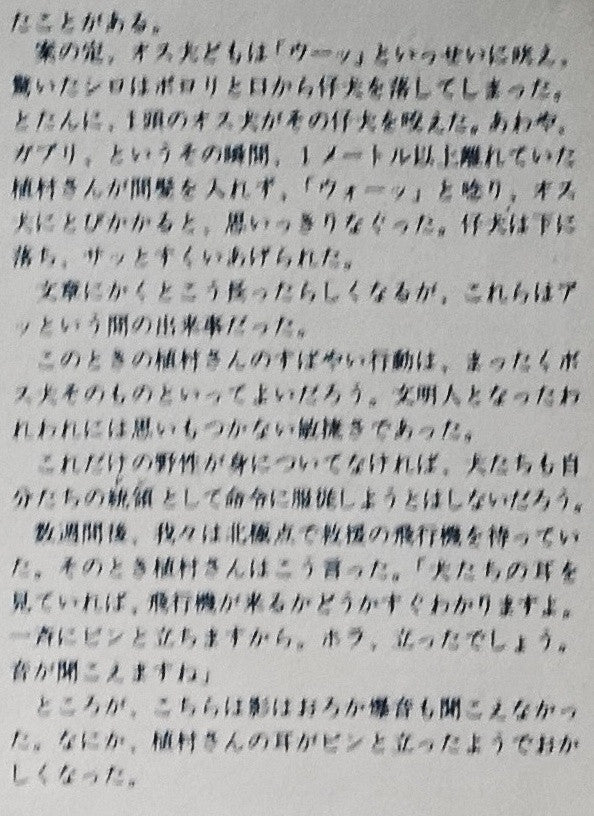 たことがある。
案の定，オス犬どもは「ウーッ」といっせいに吠え，
驚いたシロはポロリと口から仔犬を落してしまった。
とたんに，1頭のオス犬がその仔犬を咬えた。あわや，
ガブリ，というその瞬間，1メートル以上離れていた
植村さんが間髪を入れず，「ウォーッ」と唸り，オス
犬にとびかかると，思いっきりなぐった。仔犬は下に
落ち，サッとすくいあげられた。
文章にかくとこう長ったらしくなるが，これらはア
ッという間の出来事だった。
このときの植村さんのすばやい行動は，まったくボ
ス犬そのものといってよいだろう。文明人となったわ
れわれには思いもつかない敏捷さであった。
これだけの野性が身についてなければ，犬たちも自
分たちの統領として命令に服従しようとはしないだろう。
数週間後，我々は北極点で救援の飛行機を待ってい
た。そのとき植村さんはこう言った。「犬たちの耳を
見ていれば，飛行機が来るかどうかすぐわかりますよ。
一斉にピンと立ちますから。ホラ，立ったでしょう。
音が聞こえますね」
ところが，こちらは影はおろか爆音も聞こえなかっ
た。なにか，植村さんの耳がピンと立ったようでおか
しくなった。